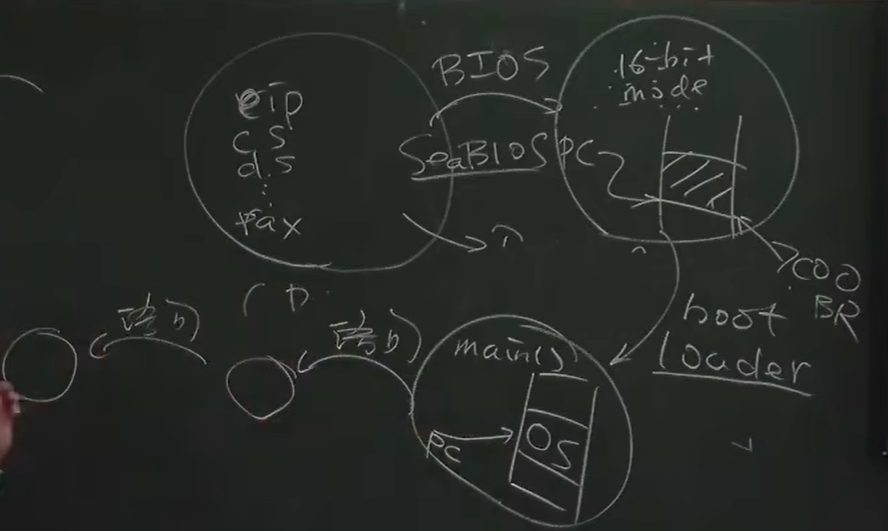 eip
cs
ds
⋮
rax
BIOS
SeaBIOS
16-bit
mode
PC
7C00
BR
boot
loader
main()
PC
OS